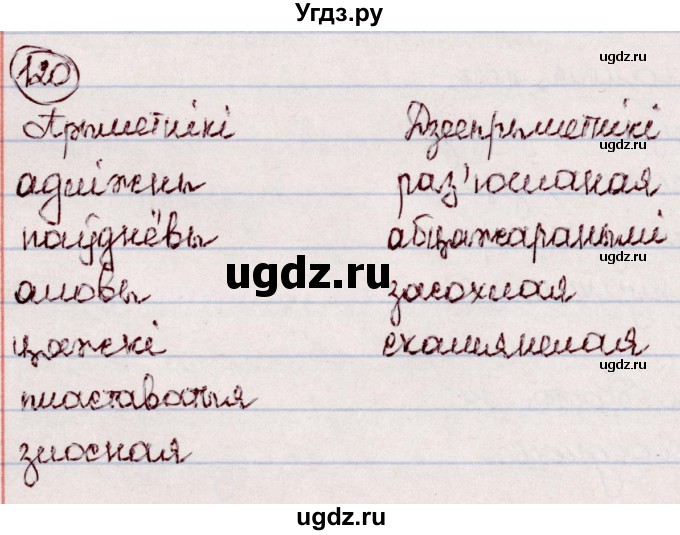 Угдз.ру
ugdz.ru
120
Прыметнікі Дзеепрыметнікі
ugdz.ru
раз'юшаная
паўднёвы абцяжаранымі
ugdz.ru
ugdz.ru
засохлая
цяжкі скамянелая
ugdz.ru
злосная
ugdz.ru
ugdz.ru